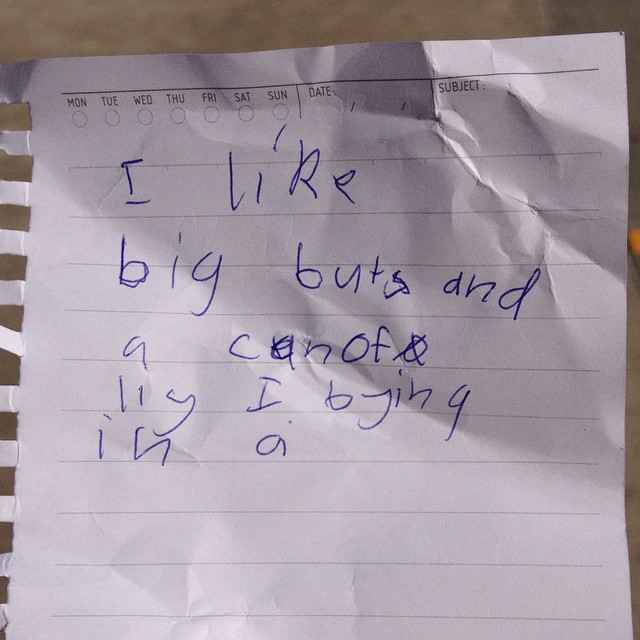 MON TUE WED THU FRI SAT SUN DATE / / SUBJECT:
I like
big buts and
a canofe
liy I bying
in a